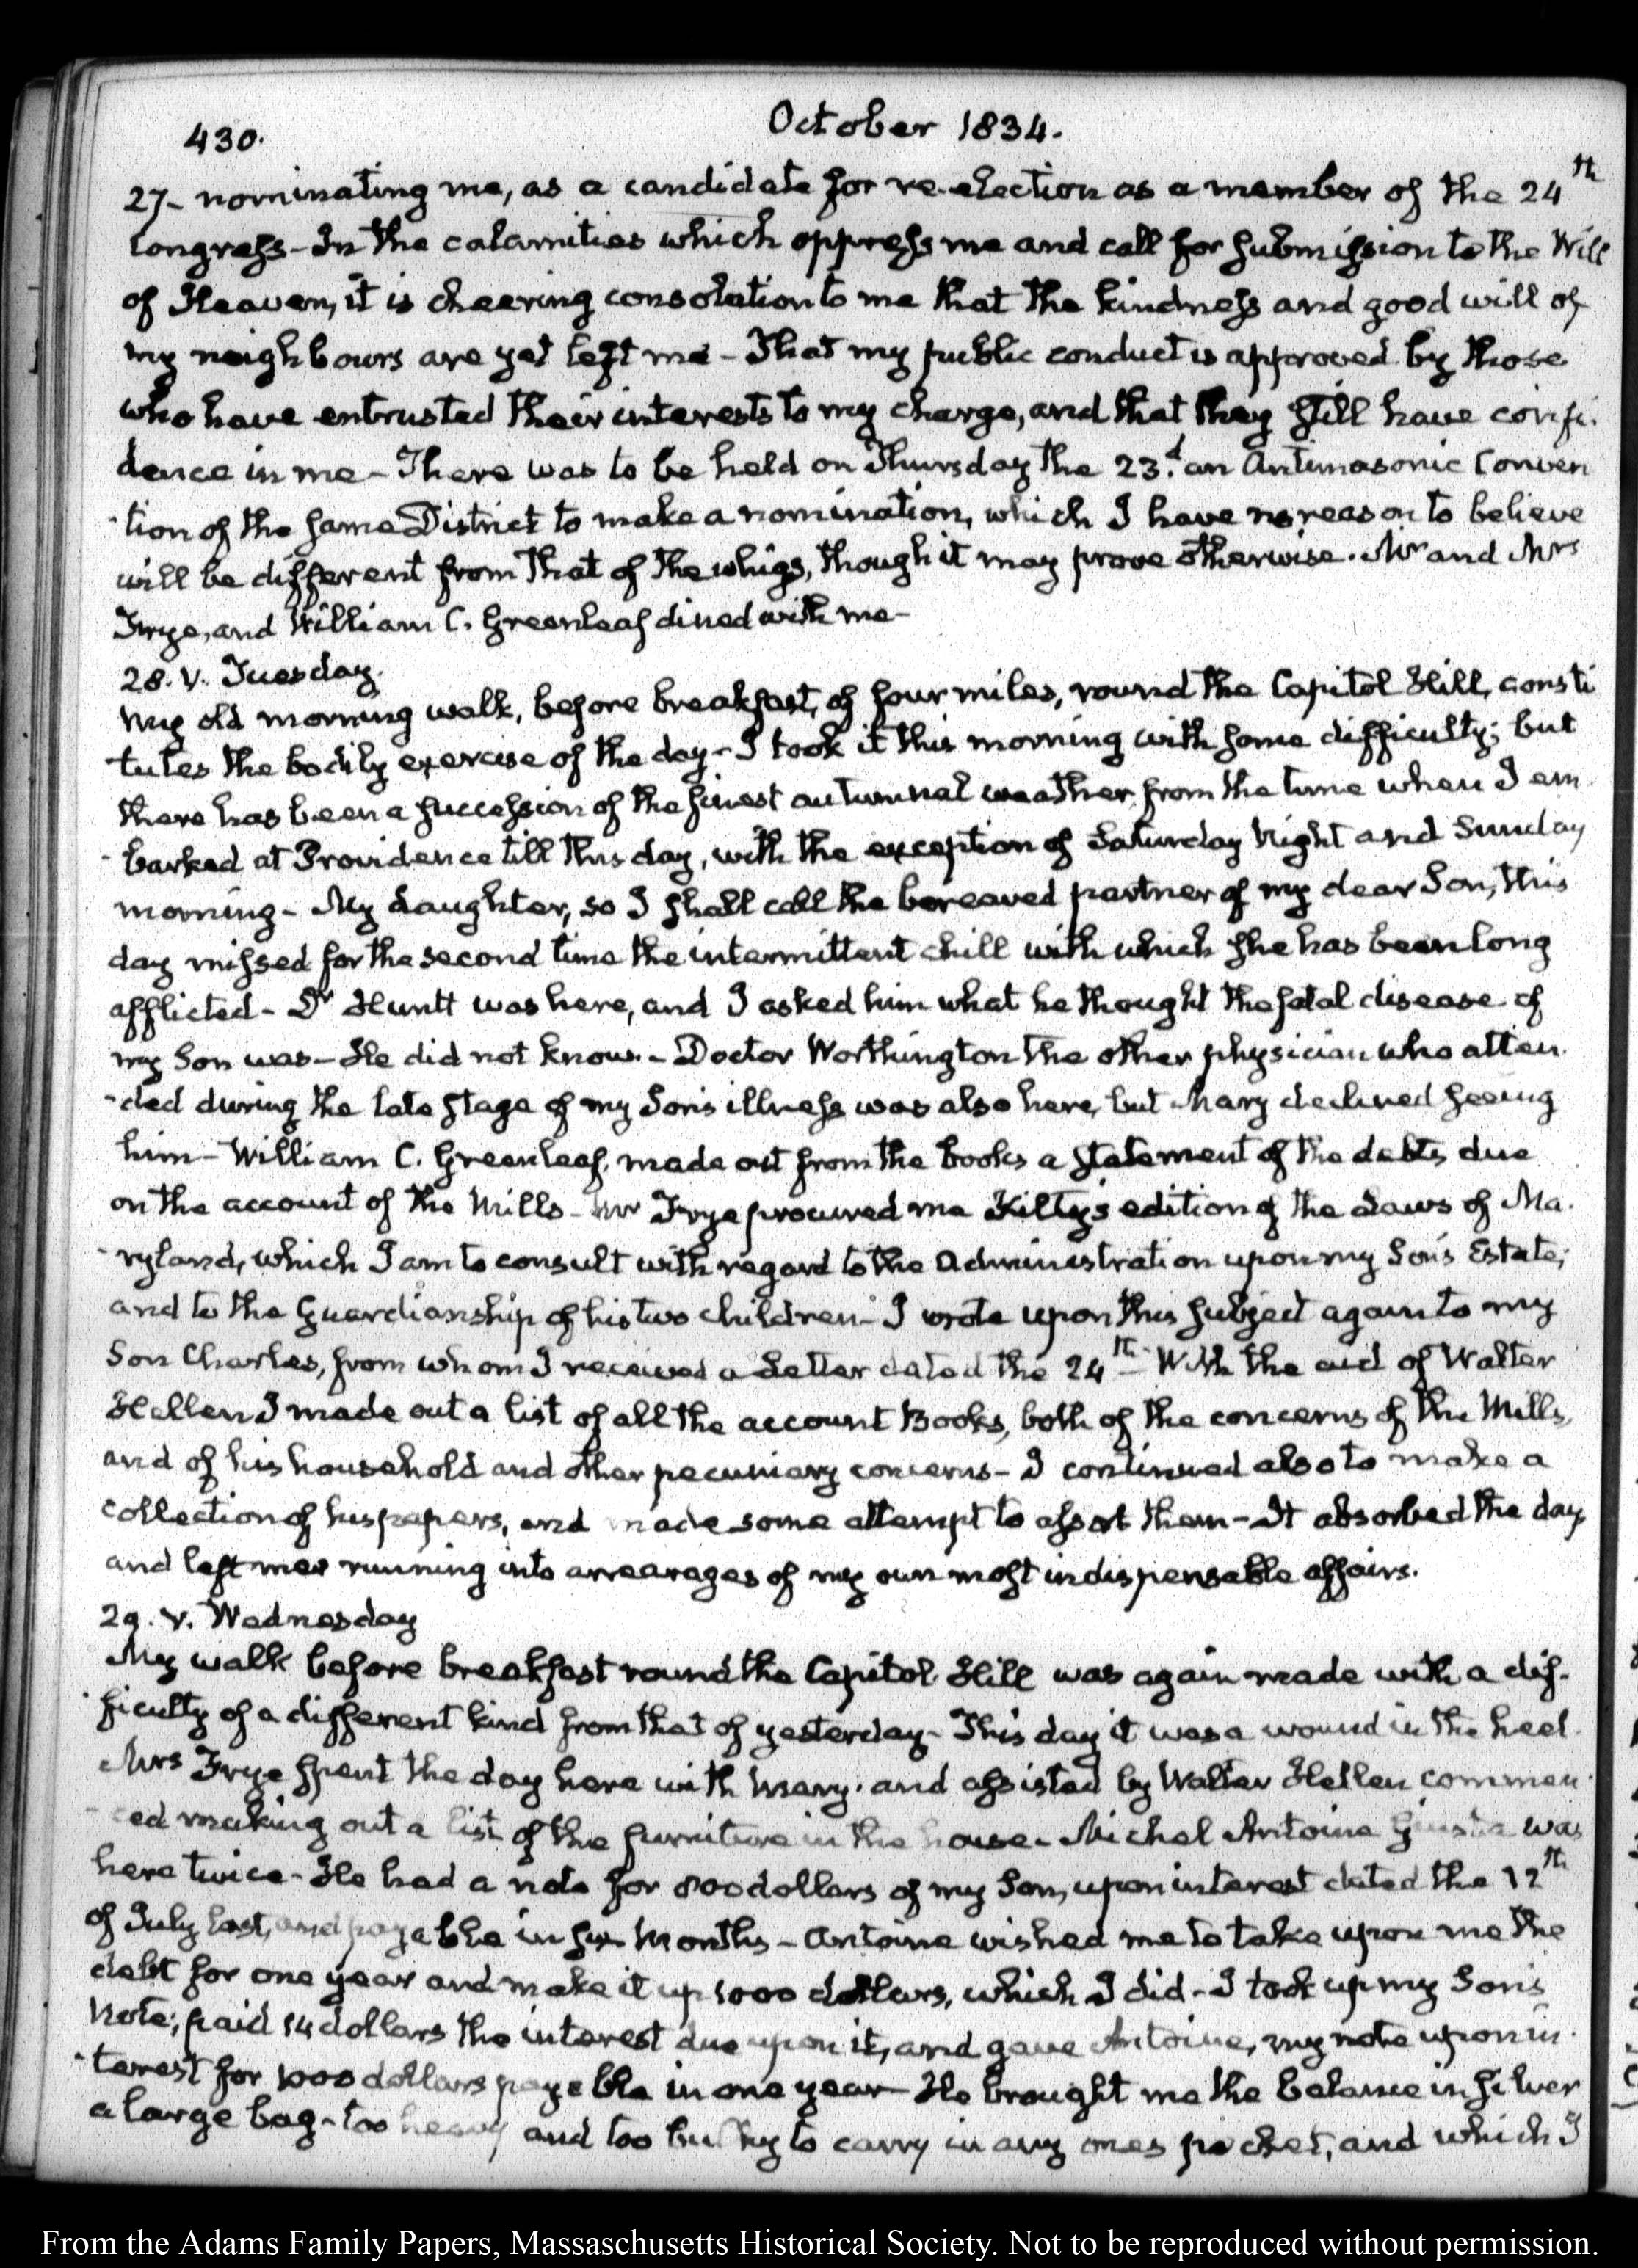 430.
October 1834.
27- nominating me, as a candidate for re-election as a member of the 24th
Congress- In the calamities which oppress me and call for submission to the Will
of Heaven, it is cheering consolation to me that the kindness and good will of
my neighbours are yet left me - That my public conduct is approved by those
who have entrusted their interests to my charge, and that they still have confi-
dence in me - There was to be held on Thursday the 23.d an Antimasonic Conven
-tion of the same District to make a nomination, which I have no reason to believe
will be different from that of the whigs, though it may prove otherwise. Mr and Mrs
Frye, and William C. Greenleaf dined with me-
28. V. Tuesday.
My old morning walk, before breakfast, of four miles, round the Capitol Hill, consti
-tutes the bodily exercise of the day - I took it this morning with some difficulty; but
there has been a succession of the finest autumnal weather from the time when I em
-barked at Providence till this day, with the exception of Saturday Night and Sunday
morning - My daughter, so I shall call the bereaved partner of my dear Son, this
day missed for the second time the intermittent chill with which she has been long
afflicted - Dr Huntt was here, and I asked him what he thought the fatal disease of
my Son was - He did not know. - Doctor Worthington the other physician who atten-
-ded during the late stage of my Son's illness was also here, but Mary declined seeing
him - William C. Greenleaf, made out from the books a statement of the debts due
on the account of the Mills - Mr Frye procured me Kilty's edition of the Laws of Ma-
-ryland, which I am to consult with regard to the Administration upon my Son's Estate;
and to the Guardianship of his two children - I wrote upon this subject again to my
Son Charles, from whom I received a Letter dated the 24th- With the aid of Walter
Hellen I made out a list of all the account Books, both of the concerns of the Mills,
and of his household and other pecuniary concerns - I continued also to make a
collection of his papers, and made some attempt to assort them - It absorbed the day
and left me running into arrearages of my own most indispensable affairs.
29. V. Wednesday
My walk before breakfast round the Capitol Hill was again made with a dif-
-ficulty of a different kind from that of yesterday - This day it was a wound in the heel.
Mrs Frye spent the day here with Mary. and assisted by Walter Hellen commen-
-ced making out a list of the furniture in the house - Michel Antoine Giusta was
here twice - He had a note for 800 dollars of my Son, upon interest dated the 12th
of July last, and payable in six Months - Antoine wished me to take upon me the
debt for one year and make it up 1000 dollars, which I did - I took up my Son's
Note; paid 14 dollars the interest due upon it, and gave Antoine, my note upon in-
-terest for 1000 dollars payable in one year - He brought me the balance in silver
a large bag - too heavy and too bulky to carry in any ones pocket, and which I
From the Adams Family Papers, Massachusetts Historical Society. Not to be reproduced without permission.